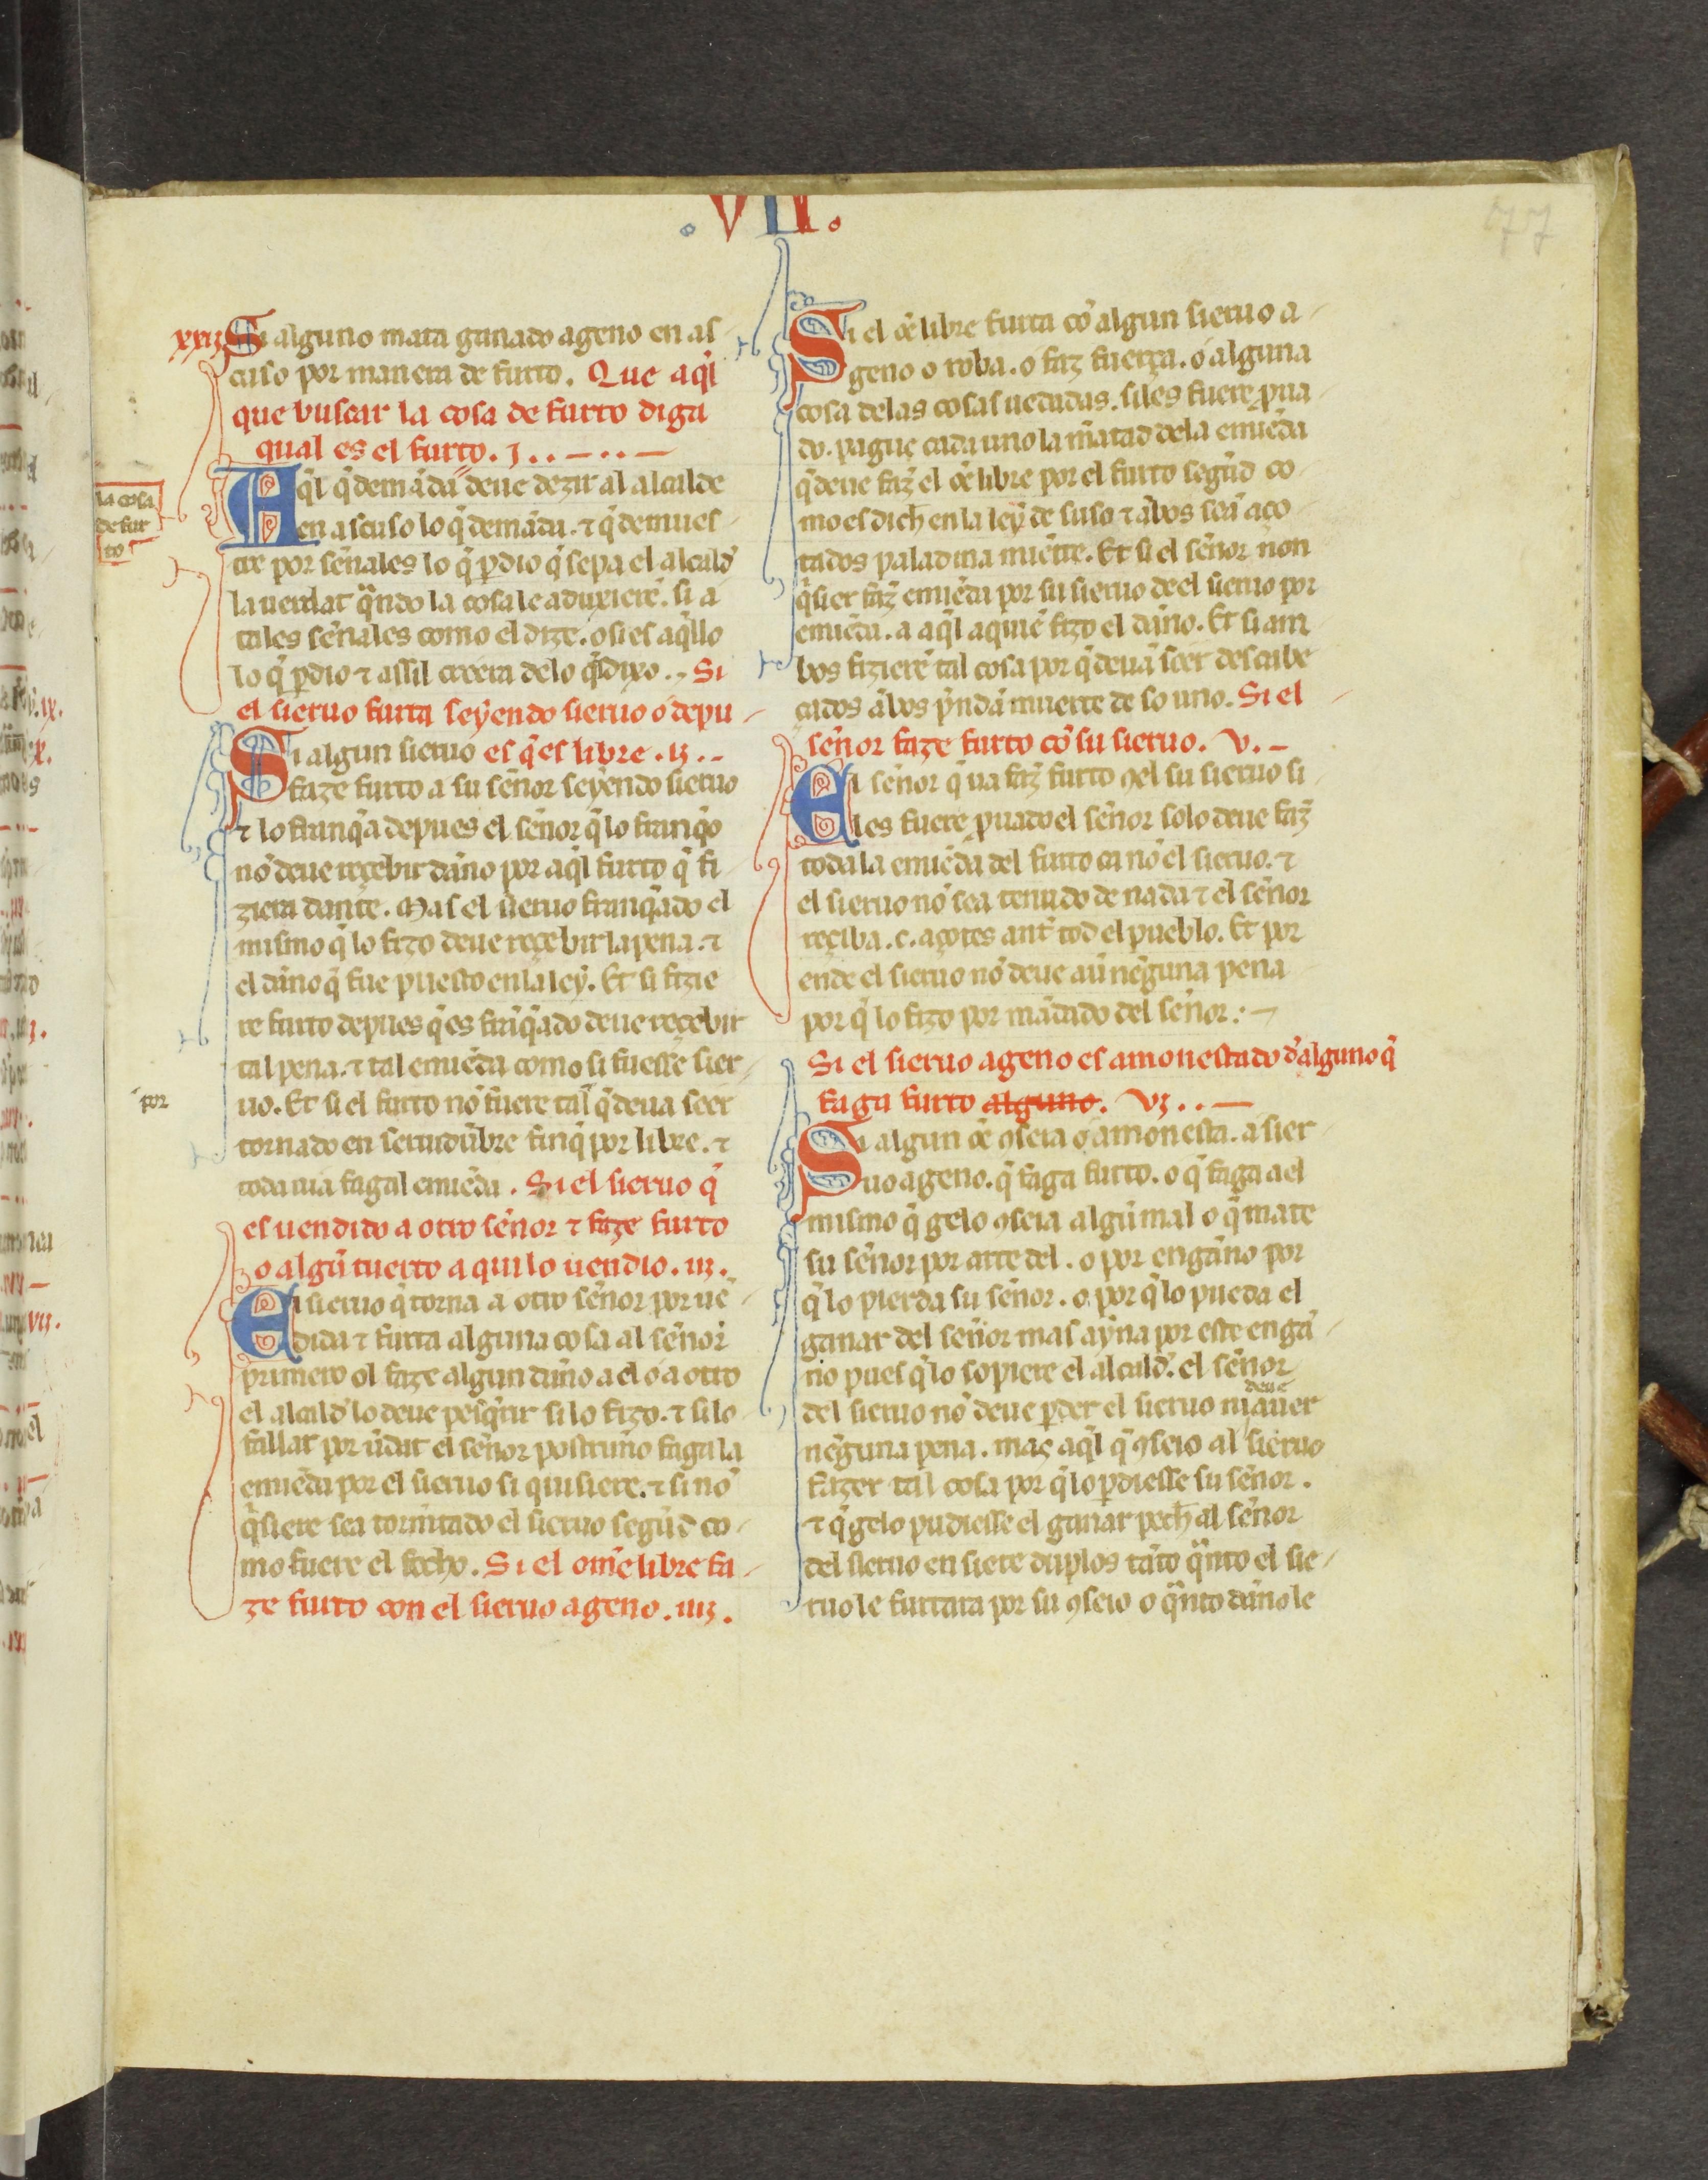 .VII.
77
xxiiȷ Si alguno mata ganado ageno en as
cuso por manera de furto. Que aq̃l
que buscar la cosa de furto diga
qual es el furto. j..-..-
Aq̃l q̃ demãda deue dezir al alcalde
la cosa
de fur
to
en ascuso lo q̃ demãda. ⁊ q̃ demues
tre por señales lo q̃ ꝑdio q̃ sepa el alcald̃
la uerdat q̃ndo la cosa le aduxierẽ. si a
tales señales como el dize. o si es aq̃llo
lo q̃ ꝑdio ⁊ assil creera delo q̃ dixo.. Si
el sieruo furta seyendo sieruo o depu
Si algun sieruo es q̃ es libre .ij..-
faze furto a su señor seyendo sieruo
⁊ lo franq̃a depues el señor q̃ lo franq̃o
nõ deue reçebir daño por aq̃l furto q̃ fi
ziera dante. Mas el sieruo franq̃ado el
mismo q̃ lo fizo deue reçebir la pena. ⁊
el daño q̃ fue puesto en la ley. Et si fizie
re furto depues q̃ es frãq̃ado deue reçebir
tal pena. ⁊ tal emiẽda como si fuesse sier
por
uo. Et si el furto nõ fuere tal q̃ deua seer
tornado en seruidũbre finq̃ por libre. ⁊
toda uia fagal emiẽda. Si el sieruo q̃
es uendido a otro señor ⁊ faze furto
o algũ tuerto a qui lo uendio. iij.
El sieruo q̃ torna a otro señor por uẽ
dida ⁊ furta alguna cosa al señor
primero ol faze algun daño a el o a otro
el alcald̃ lo deue pesq̃rir si lo fizo. ⁊ si lo
fallar por ũdat el señor postrimo faga la
emiẽda por el sieruo si quisiere. ⁊ si nõ
q̃siere sea tormẽtado el sieruo segũd co
mo fuere el fecho. Si el om̃e libre fa
ze furto con el sieruo ageno. iiij.
Si el oẽ libre furta cõ algun sieruo a
geno o roba. o faz fuerça. o alguna
cosa delas cosas uedadas. siles fuere ꝓua
do. pague cada uno la m̃atad dela emiẽda
q̃ deue faz̃ el oẽ libre por el furto segũd co
mo es dich̃ en la ley de suso ⁊ ãbos seã aço
tados paladina miẽtre. Et si el señor non
q̃sier faz̃ emiẽda por su sieruo de el sieruo por
emiẽda. a aq̃l a quiẽ fizo el daño. Et si am
bos fizierẽ tal cosa por q̃ deuã seer descabe
çados ãbos p̃ndã muerte de so uno. Si el
señor faze furto cõ su sieruo. v.-
El señor q̃ ua faz̃ furto ꝯel su sieruo si
les fuere ꝓuado el señor solo deue faz̃
toda la emiẽda del furto ca nõ el sieruo. ⁊
el sieruo nõ sea tenudo de nada ⁊ el señor
reçiba .c. açotes ant̃ tod el pueblo. Et por
ende el sieruo nõ deue aũ nẽguna pena
por q̃ lo fizo por mãdado del señor:-
Si el sieruo ageno es amonestado d̃ alguno q̃
faga furto alguno. vj..-
Si algun oẽ ꝯseia o amonesta. a sier
uo ageno. q̃ faga furto. o q̃ faga a el
mismo q̃ gelo ꝯseia algũ mal o q̃ mate
su señor por arte del. o por engaño por
q̃ lo pierda su señor. o por q̃ lo pueda el
ganar del señor mas ayna por este enga
ño pues q̃ lo sopiere el alcald̃. el señor
deue
del sieruo nõ deue ꝑder el sieruo ni auer
nẽguna pena. mas aq̃l q̃ ꝯseio al sieruo
fazer tal cosa por q̃ lo ꝑdiesse su señor.
⁊ q̃ gelo pudiesse el ganar pech̃ al señor
del sieruo en siete duplos tãto q̃nto el sie
ruo le furtara por su ꝯseio o q̃nto dãno le